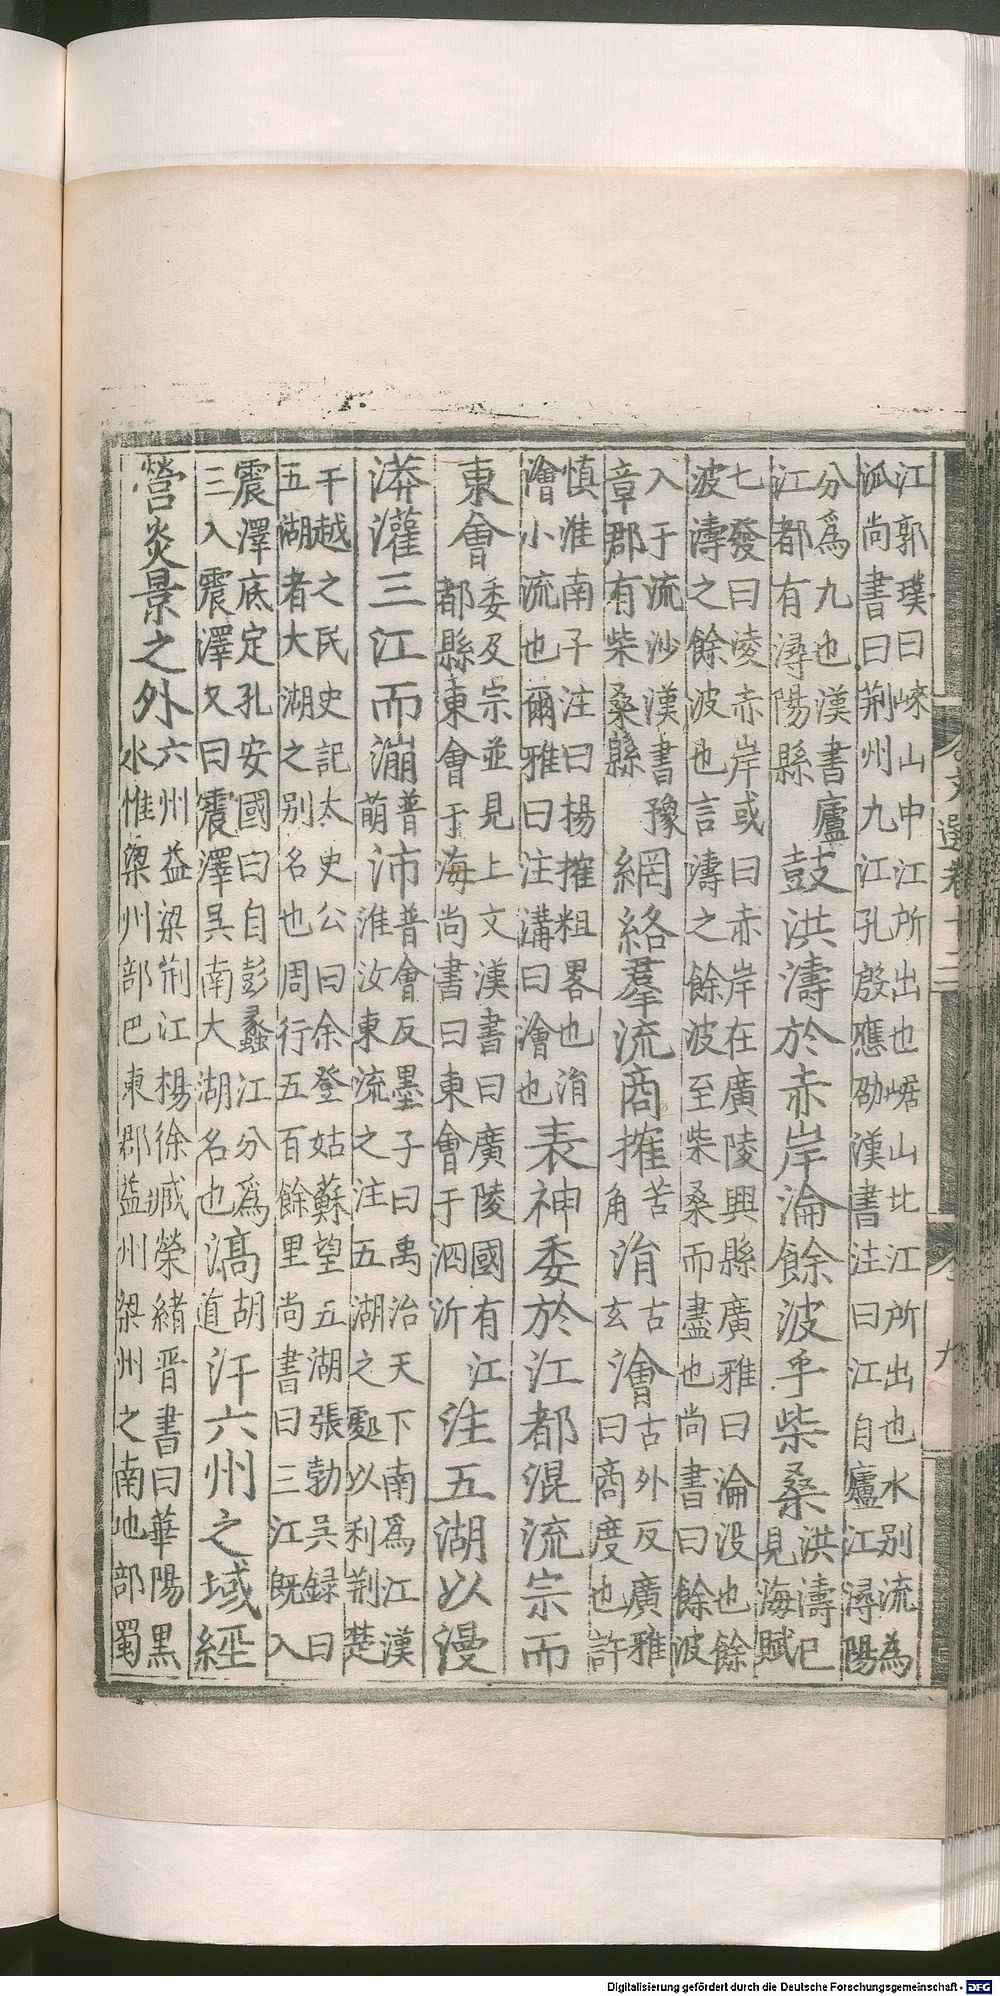 江郭璞曰崍山中江所出也崌山北江所出也水别流為
泒尚書曰荆州九江孔殷應劭漢書注曰江自廬江潯陽
分爲九也漢書廬
江都有潯陽縣
鼓洪濤於赤岸淪餘波乎柴桑
洪濤已
見海賦
七發曰凌赤岸或曰赤岸在廣陵輿縣廣雅曰淪没也餘
波濤之餘波也言濤之餘波至柴桑而盡也尚書曰餘波
入于流沙漢書豫
章郡有柴桑縣
網絡羣流商搉
苦
角
涓
古
玄
澮
古外反廣雅
曰商度也許
慎淮南子注曰揚搉粗畧也涓
澮小流也爾雅曰注溝曰澮也
表神委於江都混流宗而
東會
委及宗並見上文漢書曰廣陵國有江
都縣東會于海尚書曰東會于泗沂
注五湖以漫
漭灌三江而漰
普
萌
沛
普會反墨子曰禹治天下南爲江漢
淮汝東流之注五湖之處以利荆楚
干越之民史記太史公曰余登姑蘇望五湖張勃吳録曰
五湖者大湖之别名也周行五百餘里尚書曰三江旣入
震澤底定孔安國曰自彭蠡江分爲
三入震澤又曰震澤吳南大湖名也
滈
胡
道
汗六州之域經
營炎景之外
六州益梁荆江楊徐臧榮緒晋書曰華陽黑
水惟梁州部巴東郡益州梁州之南地部蜀
文選卷十二
九
Digitalisierung gefördert durch die Deutsche Forschungsgemeinschaft - DFG